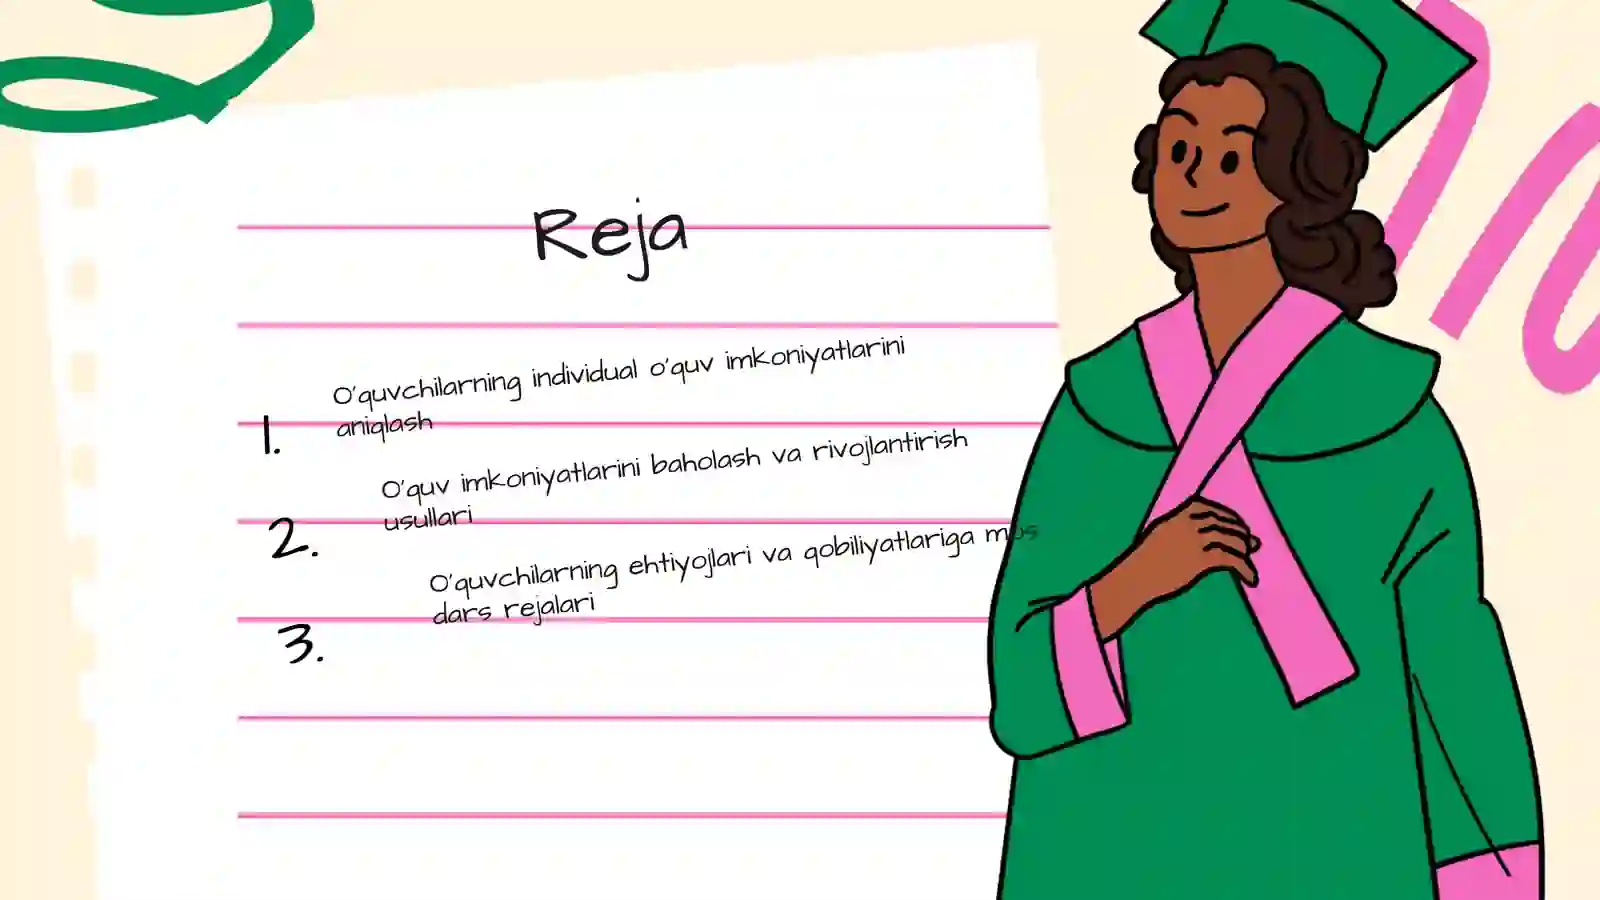 Reja
1. O'quvchilarning individual o'quv imkoniyatlarini
aniqlash
2. O'quv imkoniyatlarini baholash va rivojlantirish
usullari
3. O'quvchilarning ehtiyojlari va qobiliyatlariga mos
dars rejalari